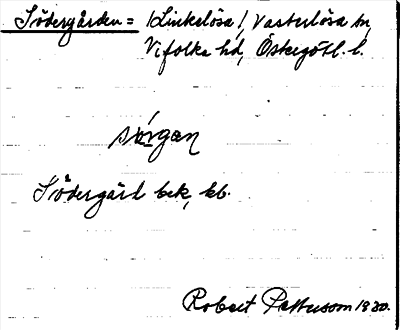 Södergården = (Linkelösa), Västerlösa sn,
Vifolka hd, Östergötl. l.
sǿrgan
Södergård bek, kb.
Robert Pettersson 1930.